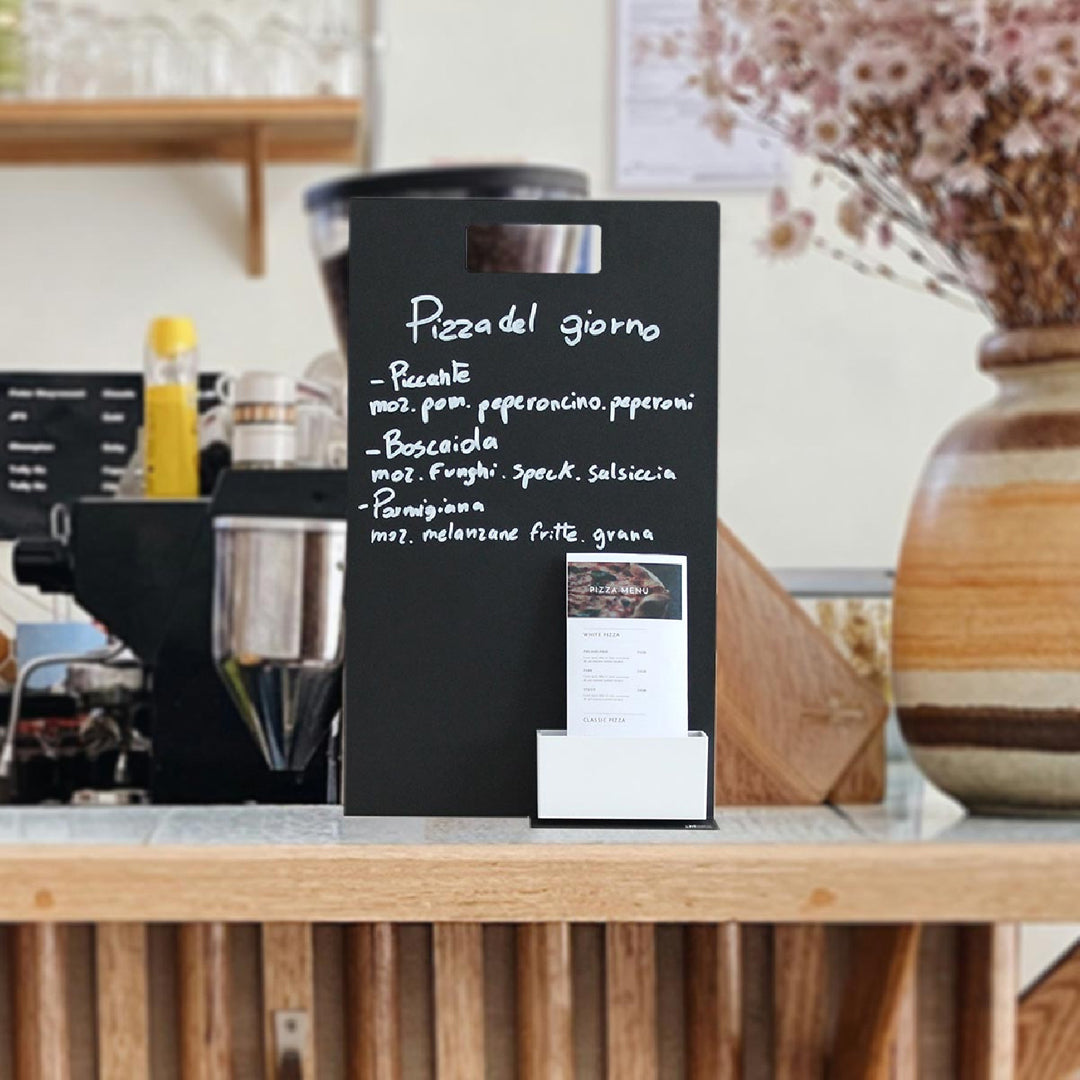 Pizza del giorno
- Piccante
moz. pom. peperoncino. peperoni
- Boscaiola
moz. Funghi. Speck. Salsiccia
- Parmigiana
moz. melanzane fritte. grana
PIZZA MENU
WHITE PIZZA
CLASSIC PIZZA